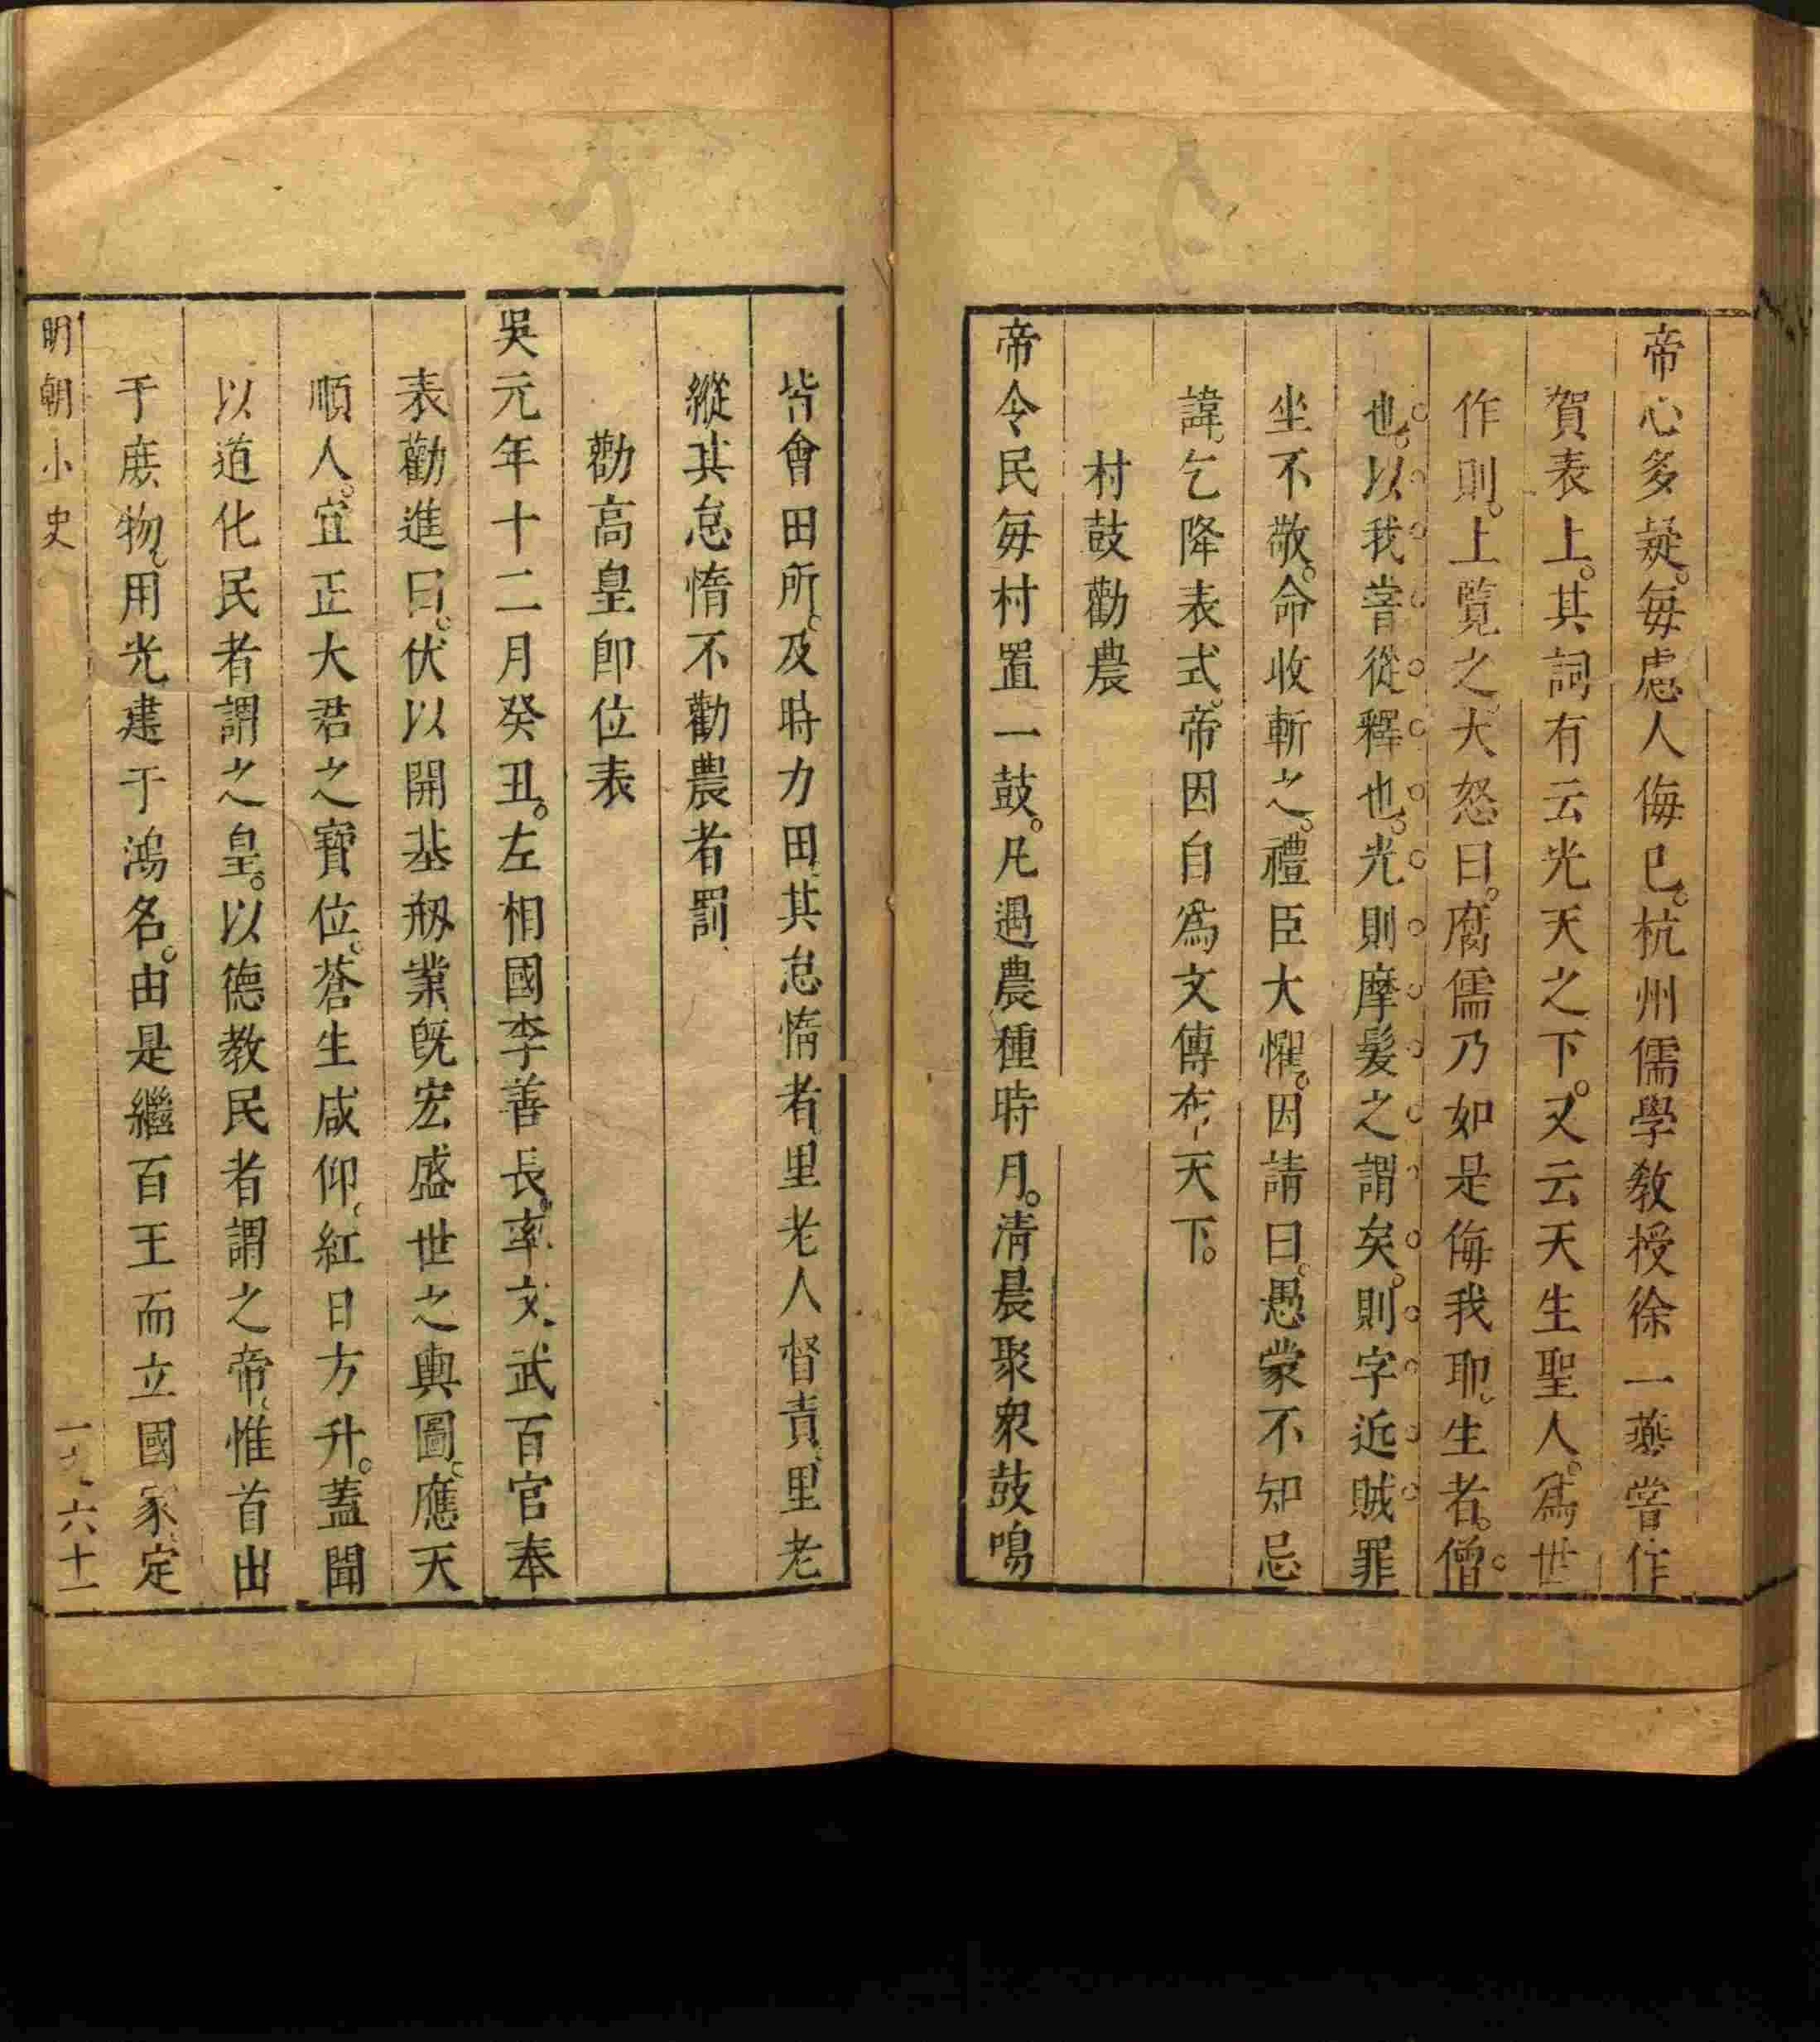 帝心多疑。每慮人侮己。杭州儒學教授徐一夔嘗作
賀表上。其詞有云光天之下。又云天生聖人。爲世
作則。上覽之大怒曰。腐儒乃如是侮我耶。生者。僧
也。以我嘗從釋也。光則摩髮之謂矣。則字近賊罪
坐不敬。命收斬之。禮臣大懼。因請曰。愚蒙不知忌
諱。乞降表式。帝因自爲文傳布天下。
村鼓勸農
帝令民每村置一鼓。凡遇農種時月。清晨聚衆鼓鳴
皆會田所。及時力田。其怠惰者。里老人督責。里老
縱其怠惰不勸農者罰
勸高皇卽位表
吳元年十二月癸丑。左相國李善長。率文武百官奉
表勸進曰。伏以開基剏業旣宏盛世之輿圖。應天
順人。宜正大君之寶位。蒼生咸仰。紅日方升。蓋聞
以道化民者謂之皇。以德教民者謂之帝。惟首出
于庶物。用光建于鴻名。由是繼百王而立國家。定
明朝小史
六十一